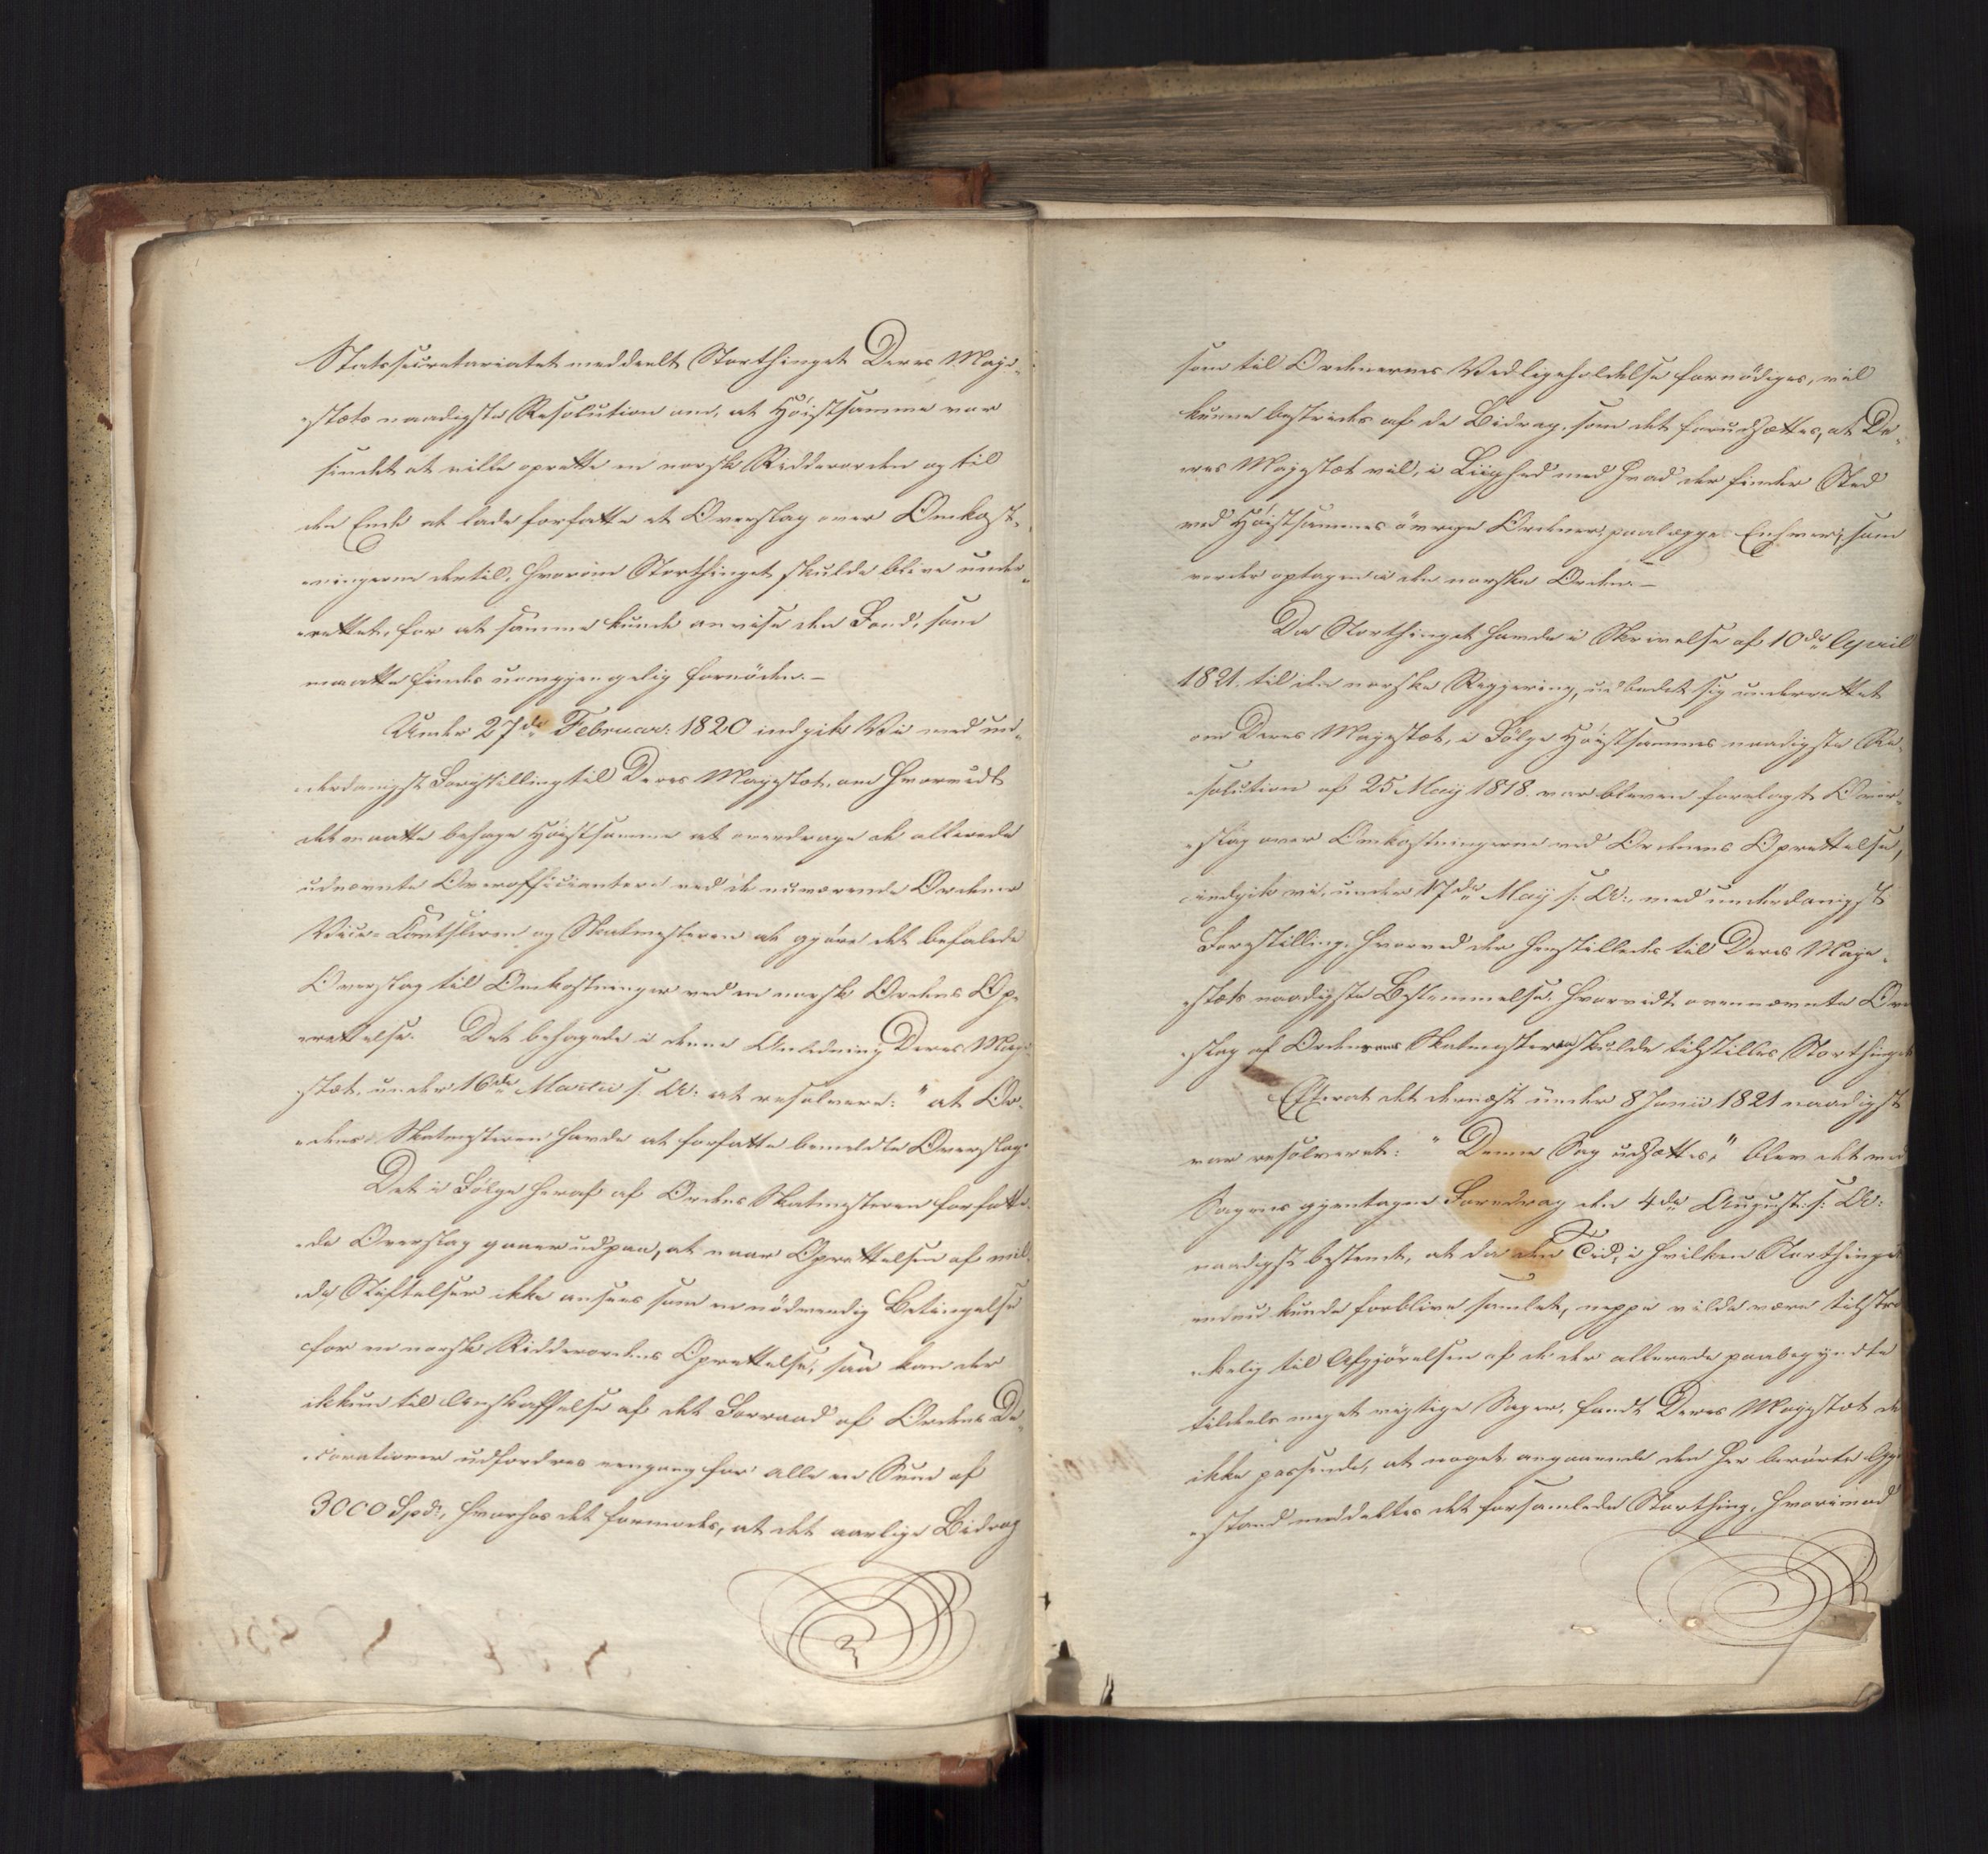 Statssecretariatet meddeelt Storthinget Deres Maje-
-stæts naadigste Resolution om, at Höistsamme var
sindet at ville oprette en norsk Ridderorden og til
den Ende at lade forfatte et Overslag over Omkost-
-ningerne dertil, hvorom Storthinget skulde blive under-
-rettet, for at samme kunde anvise den Fond, som
maatte findes uomgjængelig fornöden.-
Under 27de Februar: 1820 indgik Vi med un-
-derdanigst Forestilling til Deres Majestæt, om hvorvidt
det maatte behage Höistsamme at overdrage de allerede
udnævnte Overofficianter ved de nuværende Ordener
Vice-Cantsleren og Skatmesteren at gjöre det befalede
Overslag til Omkostninger ved en norsk Ordens Op-
-rettelse. Det behagede i denne Anledning Deres Maje-
stæt, under 16de Martii s: A: at resolvere: "at Or-
-dens Skatmesteren havde at forfatte bemeldte Overslag"
Det i Fölge heraf af Ordens Skatmesteren forfatte-
-de Overslag gaaer ud paa, at naar Oprettelsen af mil-
-de Stiftelser ikke ansees som en nödvendig Betingelse
for en norsk Ridderordens Oprettelse, saa kan der
ikkun til Anskaffelse af det Forraad af Ordens De-
-corationer udfordres eengang for alle en Sum af
3000 Spd:, hvorhos det formodes, at det aarlige Bidrag
som til Ordenernes Vedligeholdelse fornödiges, vil
kunne bestrides af de Bidrag, som det forudsættes, at De-
-res Majestæt vil, i Liighed med hvad der finder Sted
ved Höistsammes övrige Ordener, paalægge Enhver, som
vorder optagen i den norske Orden.-
Da Storthinget havde i Skrivelse af 10de April
1821. til den norske Regjering, udbedet sig underrettet
om Deres Majestæt, i Fölge Höistsammes naadigste Re-
-solution af 25 Maij 1818. var bleven forelagt Over-
-slag over Omkostningerne ved Ordenens Oprettelse,
indgik vi, under 17de Maij s: A:, med underdanigst
Forestilling, hvorved der henstilledes til Deres Maje-
-stæts naadigste Bestemmelse, hvorvidt ovennævnte Over
-slag af Ordenens Skatmesteren skulde tilstilles Storthinget
Efterat det dernæst under 8 Junii 1821 naadigst
var resolveret: "Denne Sag udsættes," blev det ved
Sagens gjentagne Foredrag den 4de August: s: A:
naadigst bestemt, at da den Tid, i hvilken Storthinget
endnu kunde forblive samlet, neppe vilde være tilstræ
-kelig til Afgjörelsen af de der allerede paabegyndte
tildeels meget vigtige Sager, fandt Deres Majestæt det
ikke passende, at noget, angaaende den her berörte Gjen
-stand meddeltes det forsamlede Storthing, hvorimod